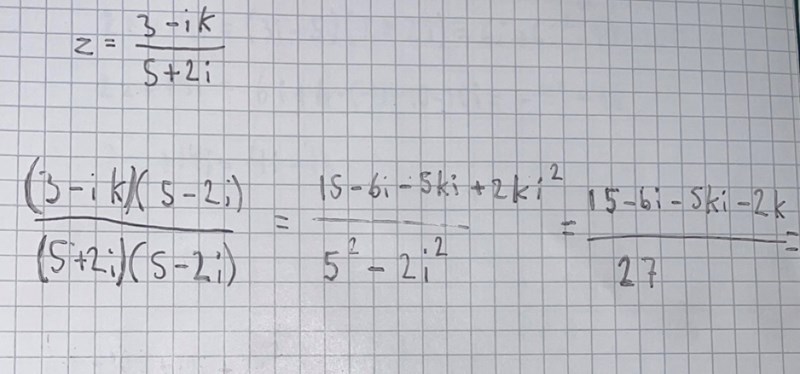 z = \frac{3-ik}{5+2i}
\frac{(3-ik)(5-2i)}{(5+2i)(5-2i)} = \frac{15-6i-5ki+2ki^2}{5^2-2i^2} = \frac{15-6i-5ki-2k}{27} =